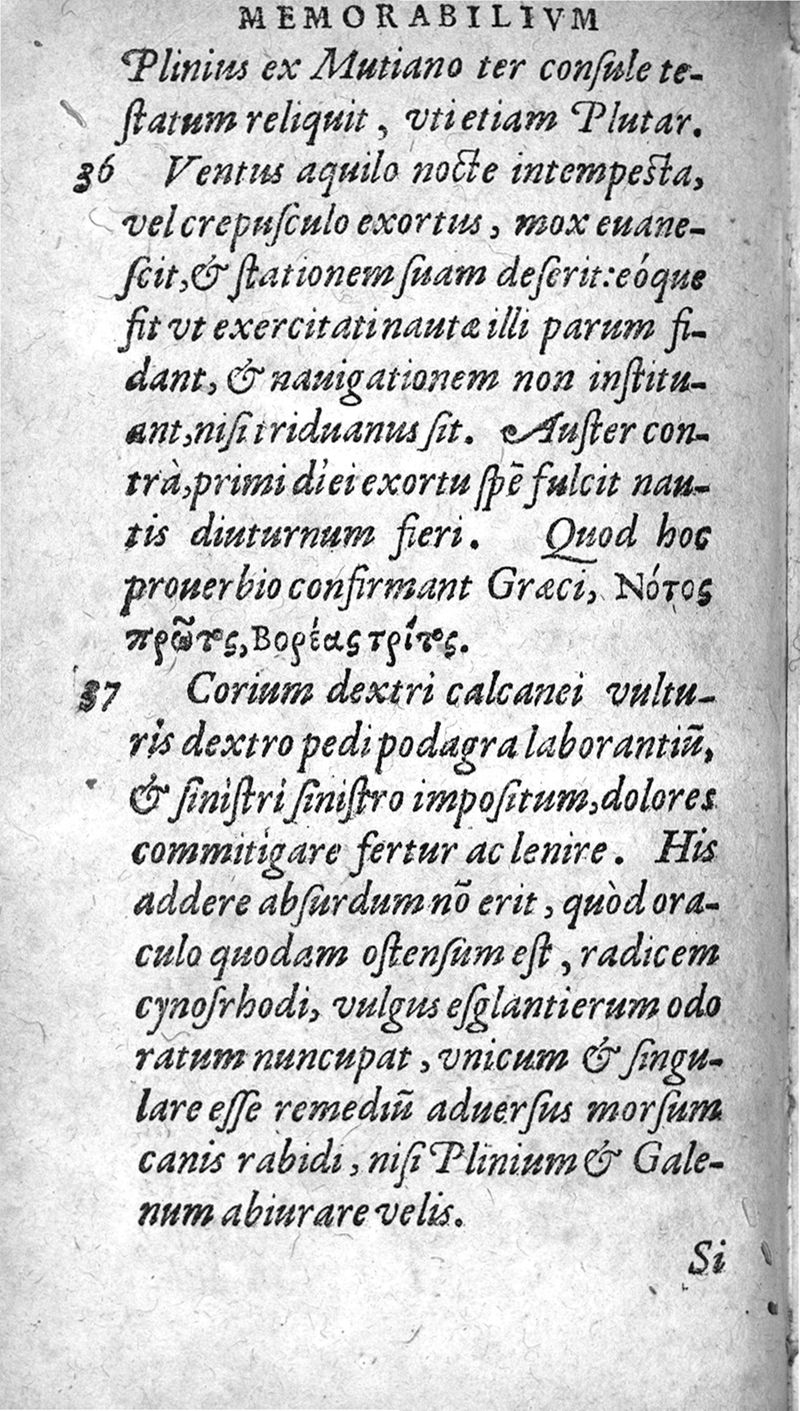 MEMORABILIVM
Plinius ex Mutiano ter conſule te-
ſtatum reliquit, vti etiam Plutar.
36 Ventus aquilo nocte intempesta,
vel crepuſculo exortus, mox euane-
ſcit, & ſtationem ſuam deſerit: eóque
fit vt exercitati nautæ illi parum fi-
dant, & nauigationem non inſtitu-
ant, niſi triduanus ſit. Auſter con-
trà, primi diei exortu ſpē fulcit nau-
tis diuturnum fieri. Quod hoc
prouerbio confirmant Græci, Νότος
πρῶτος, Βορέας τρίτος.
37 Corium dextri calcanei vultu-
ris dextro pedi podagra laborantiũ,
& ſiniſtri ſiniſtro impoſitum, dolores
commitigare fertur ac lenire. His
addere abſurdum nō erit, quòd ora-
culo quodam oſtenſum eſt, radicem
cynoſrhodi, vulgus eſglantierum odo
ratum nuncupat, vnicum & ſingu-
lare eſſe remediũ aduerſus morſum
canis rabidi, niſi Plinium & Gale-
num abiurare velis.
Si